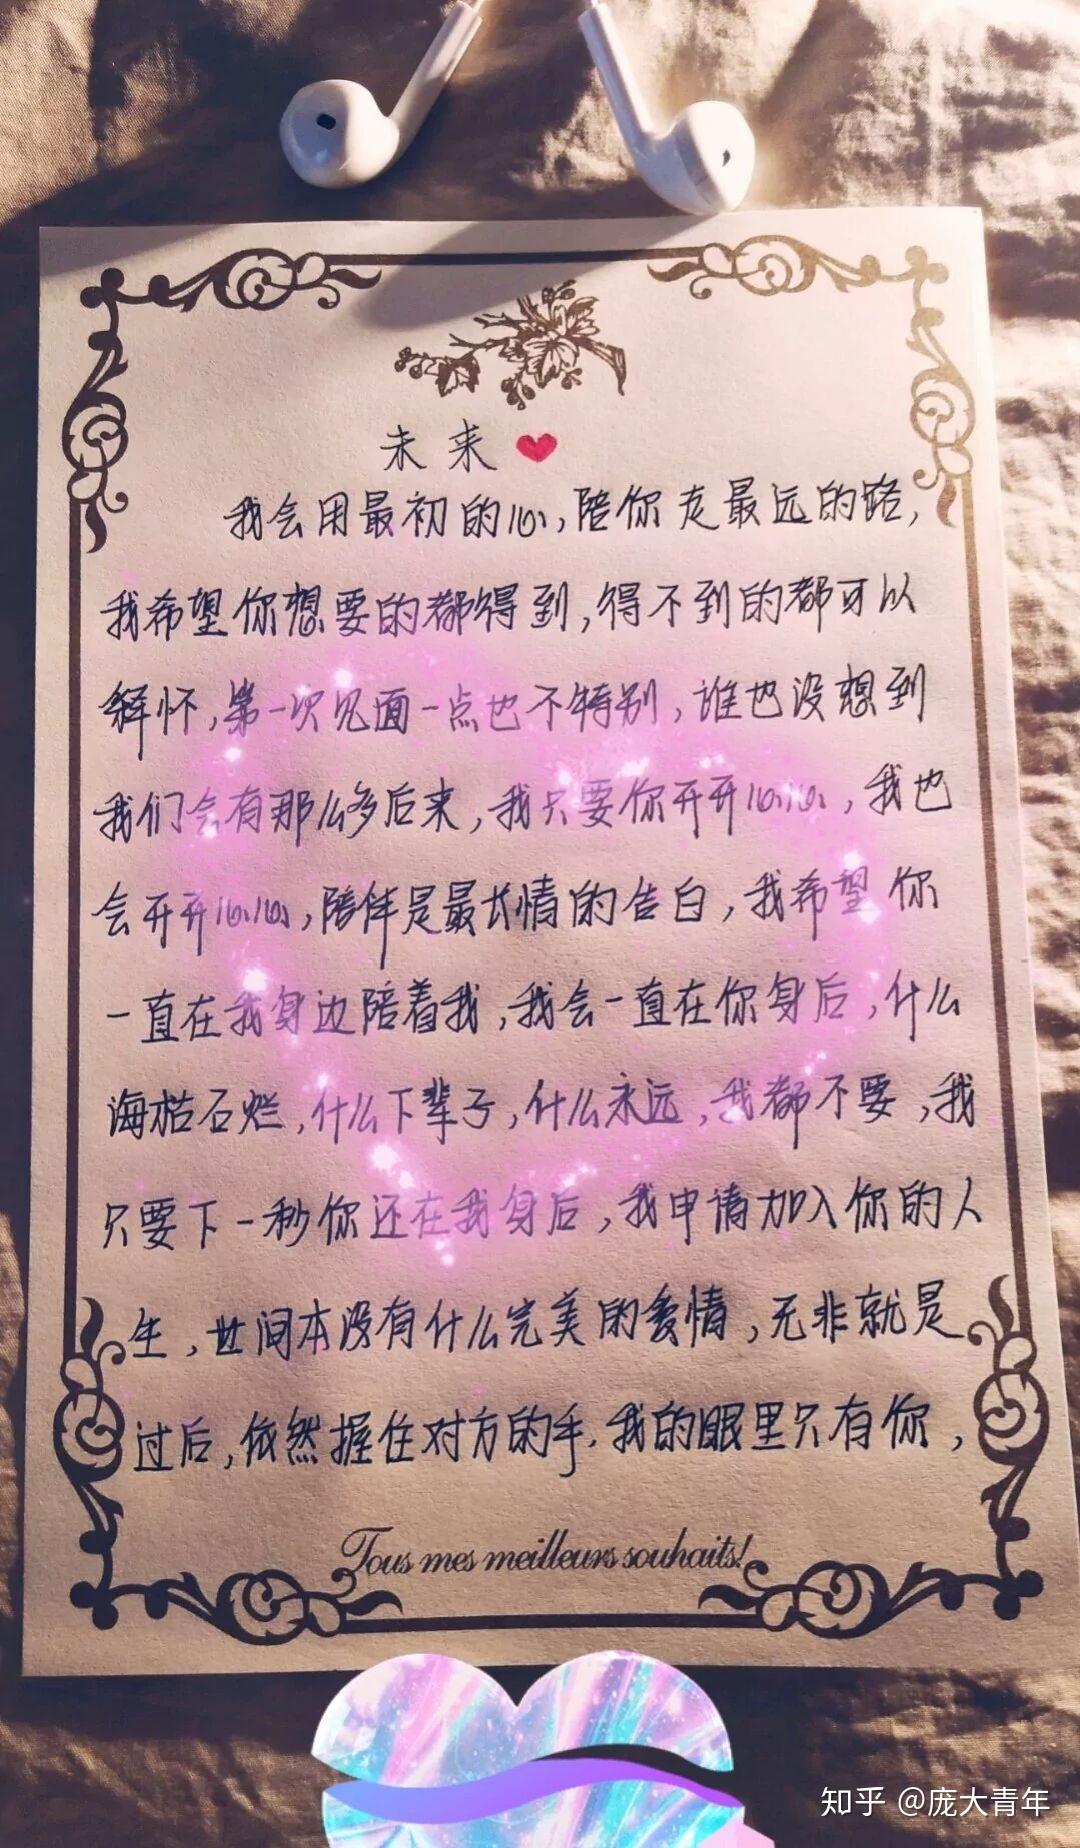 未来
我会用最初的心,陪你走最远的路,
我希望你想要的都得到,得不到的都可以
释怀,第一次见面一点也不特别,谁也没想到
我们会有那么多后来,我只要你开开心心,我也
会开开心心,陪伴是最长情的告白,我希望你
一直在我身边陪着我,我会一直在你身后,什么
海枯石烂,什么下辈子,什么永远,我都不要,我
只要下一秒你还在我身后,我申请加入你的人
生,世间本没有什么完美的爱情,无非就是
过后,依然握住对方的手.我的眼里只有你,
Tous mes meilleurs souhaits!
知乎 @庞大青年